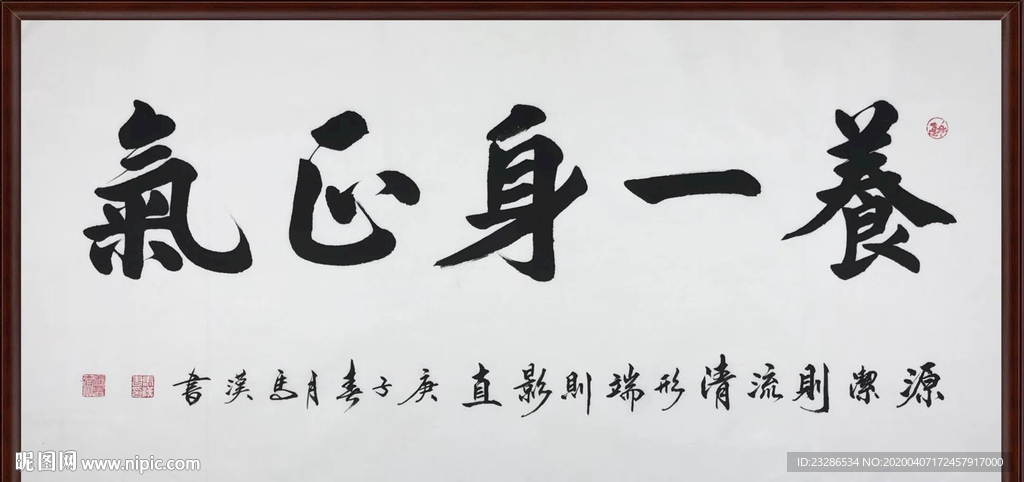 養一身正氣
源潔則流清形端則影直庚子春月馬漢書
昵图网 www.nipic.com
ID:23286534 NO:20200407172457917000